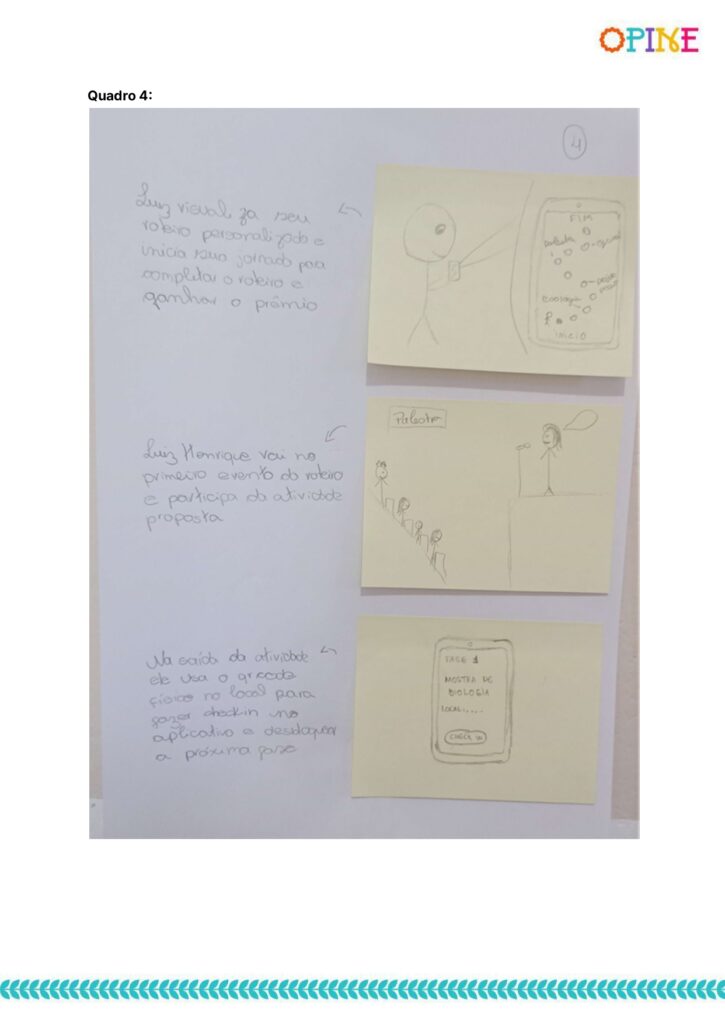 OPINE
Quadro 4:
4
Luiz visualiza seu
roteiro personalizado e
inicia sua jornada para
completar o roteiro e
ganhar o prêmio
FIM
palestra
ecologia
início
Luiz Henrique vai no
primeiro evento do roteiro
e participa da atividade
proposta
Palestra
Na saída da atividade
ele usa o qrcode
físico no local para
fazer checkin no
aplicativo e desbloquear
a próxima fase
FASE 1
MOSTRA DE
BIOLOGIA
LOCAL.....
CHECK IN